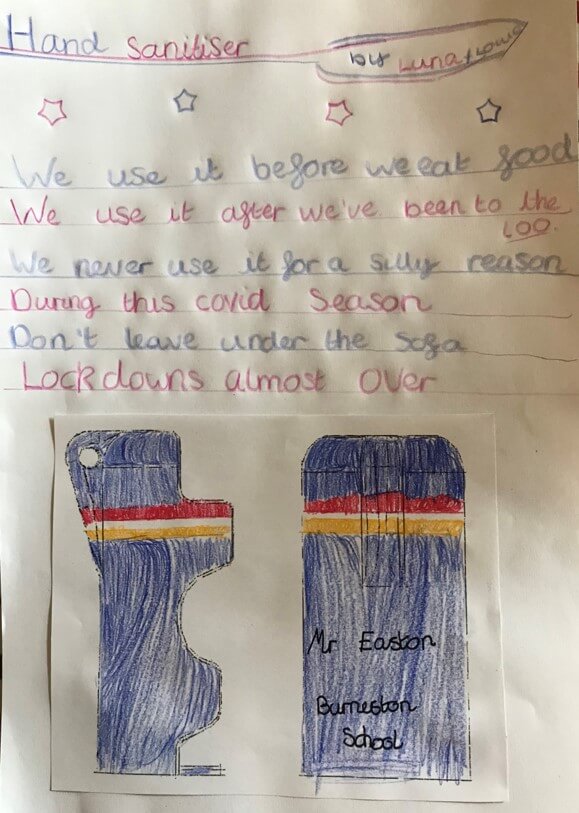 Hand Sanitiser
by Luna
We use it before we eat food
We use it after we've been to the
loo.
We never use it for a silly reason
During this covid Season
Don't leave under the sofa
Lockdowns almost over
Mr Easton
Burneston
School